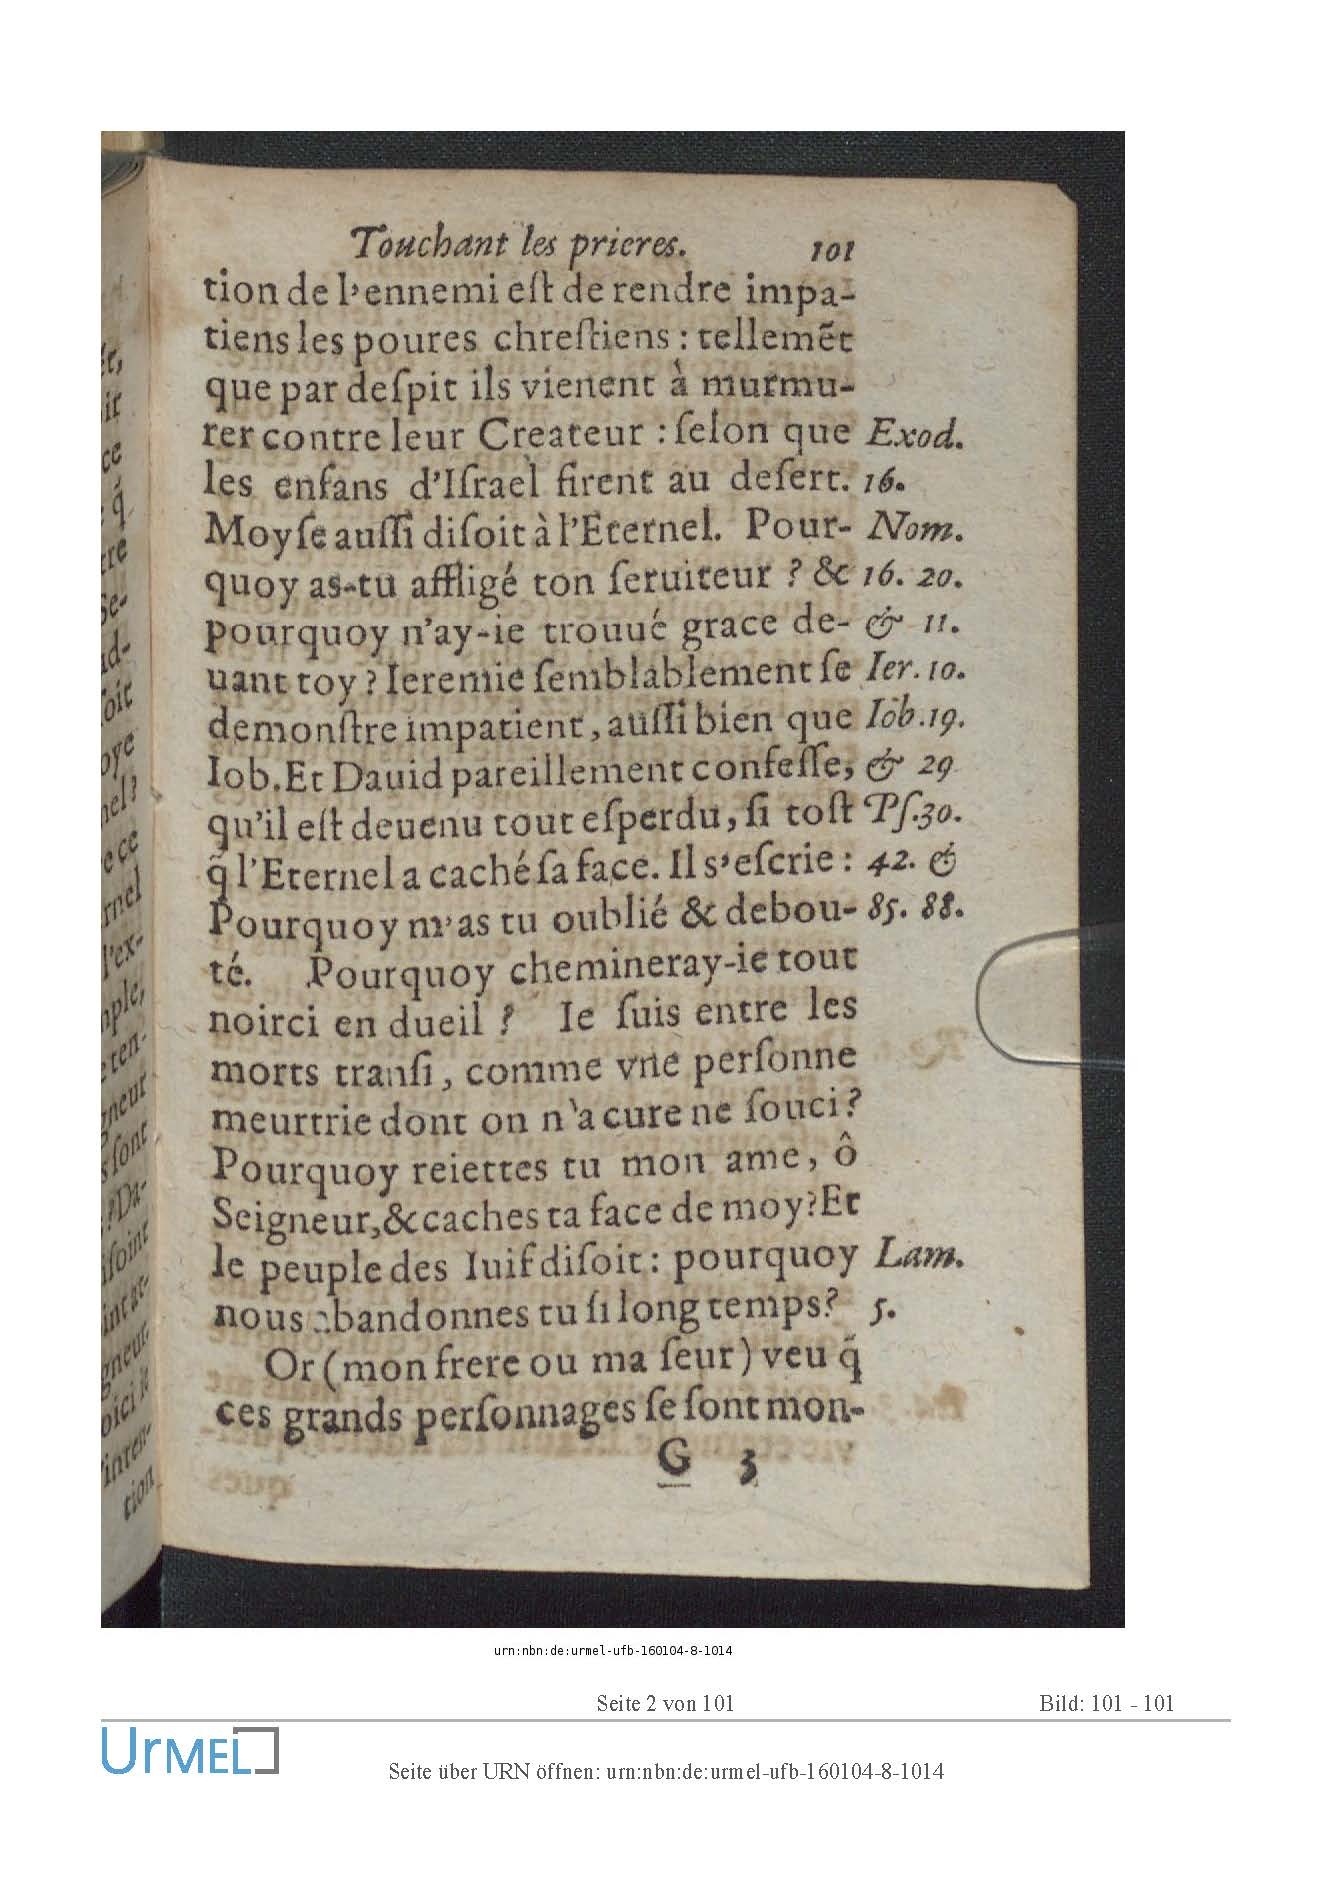 Touchant les prieres. 101
tion de l'ennemi eſt de rendre impa-
tiens les poures chreſtiens : tellemẽt
que par deſpit ils vienent à murmu-
rer contre leur Createur : ſelon que Exod.
les enfans d'Iſrael firent au deſert. 16.
Moyſe auſſi diſoit à l'Eternel. Pour- Nom.
quoy as-tu affligé ton ſeruiteur ? & 16. 20.
pourquoy n'ay-ie trouué grace de- & 11.
uant toy ? Ieremie ſemblablement ſe Ier. 10.
demonſtre impatient, auſſi bien que Iob.19.
Iob. Et Dauid pareillement confeſſe, & 29
qu'il eſt deuenu tout eſperdu, ſi toſt Pſ.30.
q̃ l'Eternel a caché ſa face. Il s'eſcrie : 42. &
Pourquoy m'as tu oublié & debou- 85. 88.
té. Pourquoy chemineray-ie tout
noirci en dueil ? Ie ſuis entre les
morts tranſi, comme vne perſonne
meurtrie dont on n'a cure ne ſouci?
Pourquoy reiettes tu mon ame, ô
Seigneur,& caches ta face de moy? Et
le peuple des Iuif diſoit : pourquoy Lam.
nous abandonnes tu ſi long temps? 5.
Or (mon frere ou ma ſeur) veu q̃
ces grands perſonnages ſe ſont mon-
G 3
urn:nbn:de:urmel-ufb-160104-8-1014
Seite 2 von 101 Bild: 101 - 101
UrMEL
Seite über URN öffnen: urn:nbn:de:urmel-ufb-160104-8-1014